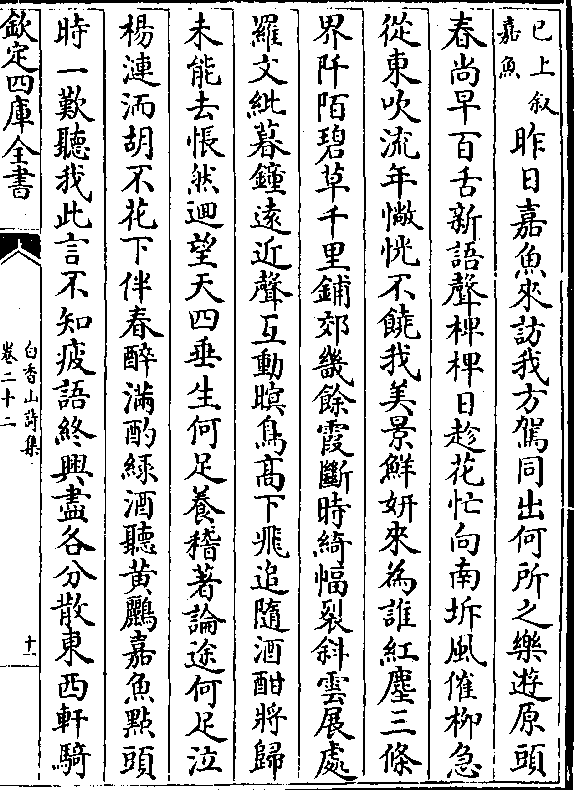 已上叙
嘉魚
昨日嘉魚來訪我方駕同出何所之樂遊原頭
春尚早百舌新語聲椑椑日趁花忙向南坼風催柳急
從東吹流年惝怳不饒我美景鮮妍來為誰紅塵三條
界阡陌碧草千里鋪郊畿餘霞斷時綺幅裂斜雲展處
羅文紕暮鐘遠近聲互動暝鳥高下飛追隨酒酣將歸
未能去悵然迴望天四垂生何足養稽著論途何足泣
楊漣洏胡不花下伴春醉滿酌綠酒聽黄鸝嘉魚點頭
時一歎聽我此言不知疲語終興盡各分散東西軒騎
欽定四庫全書
白香山詩集
卷二十二
十一